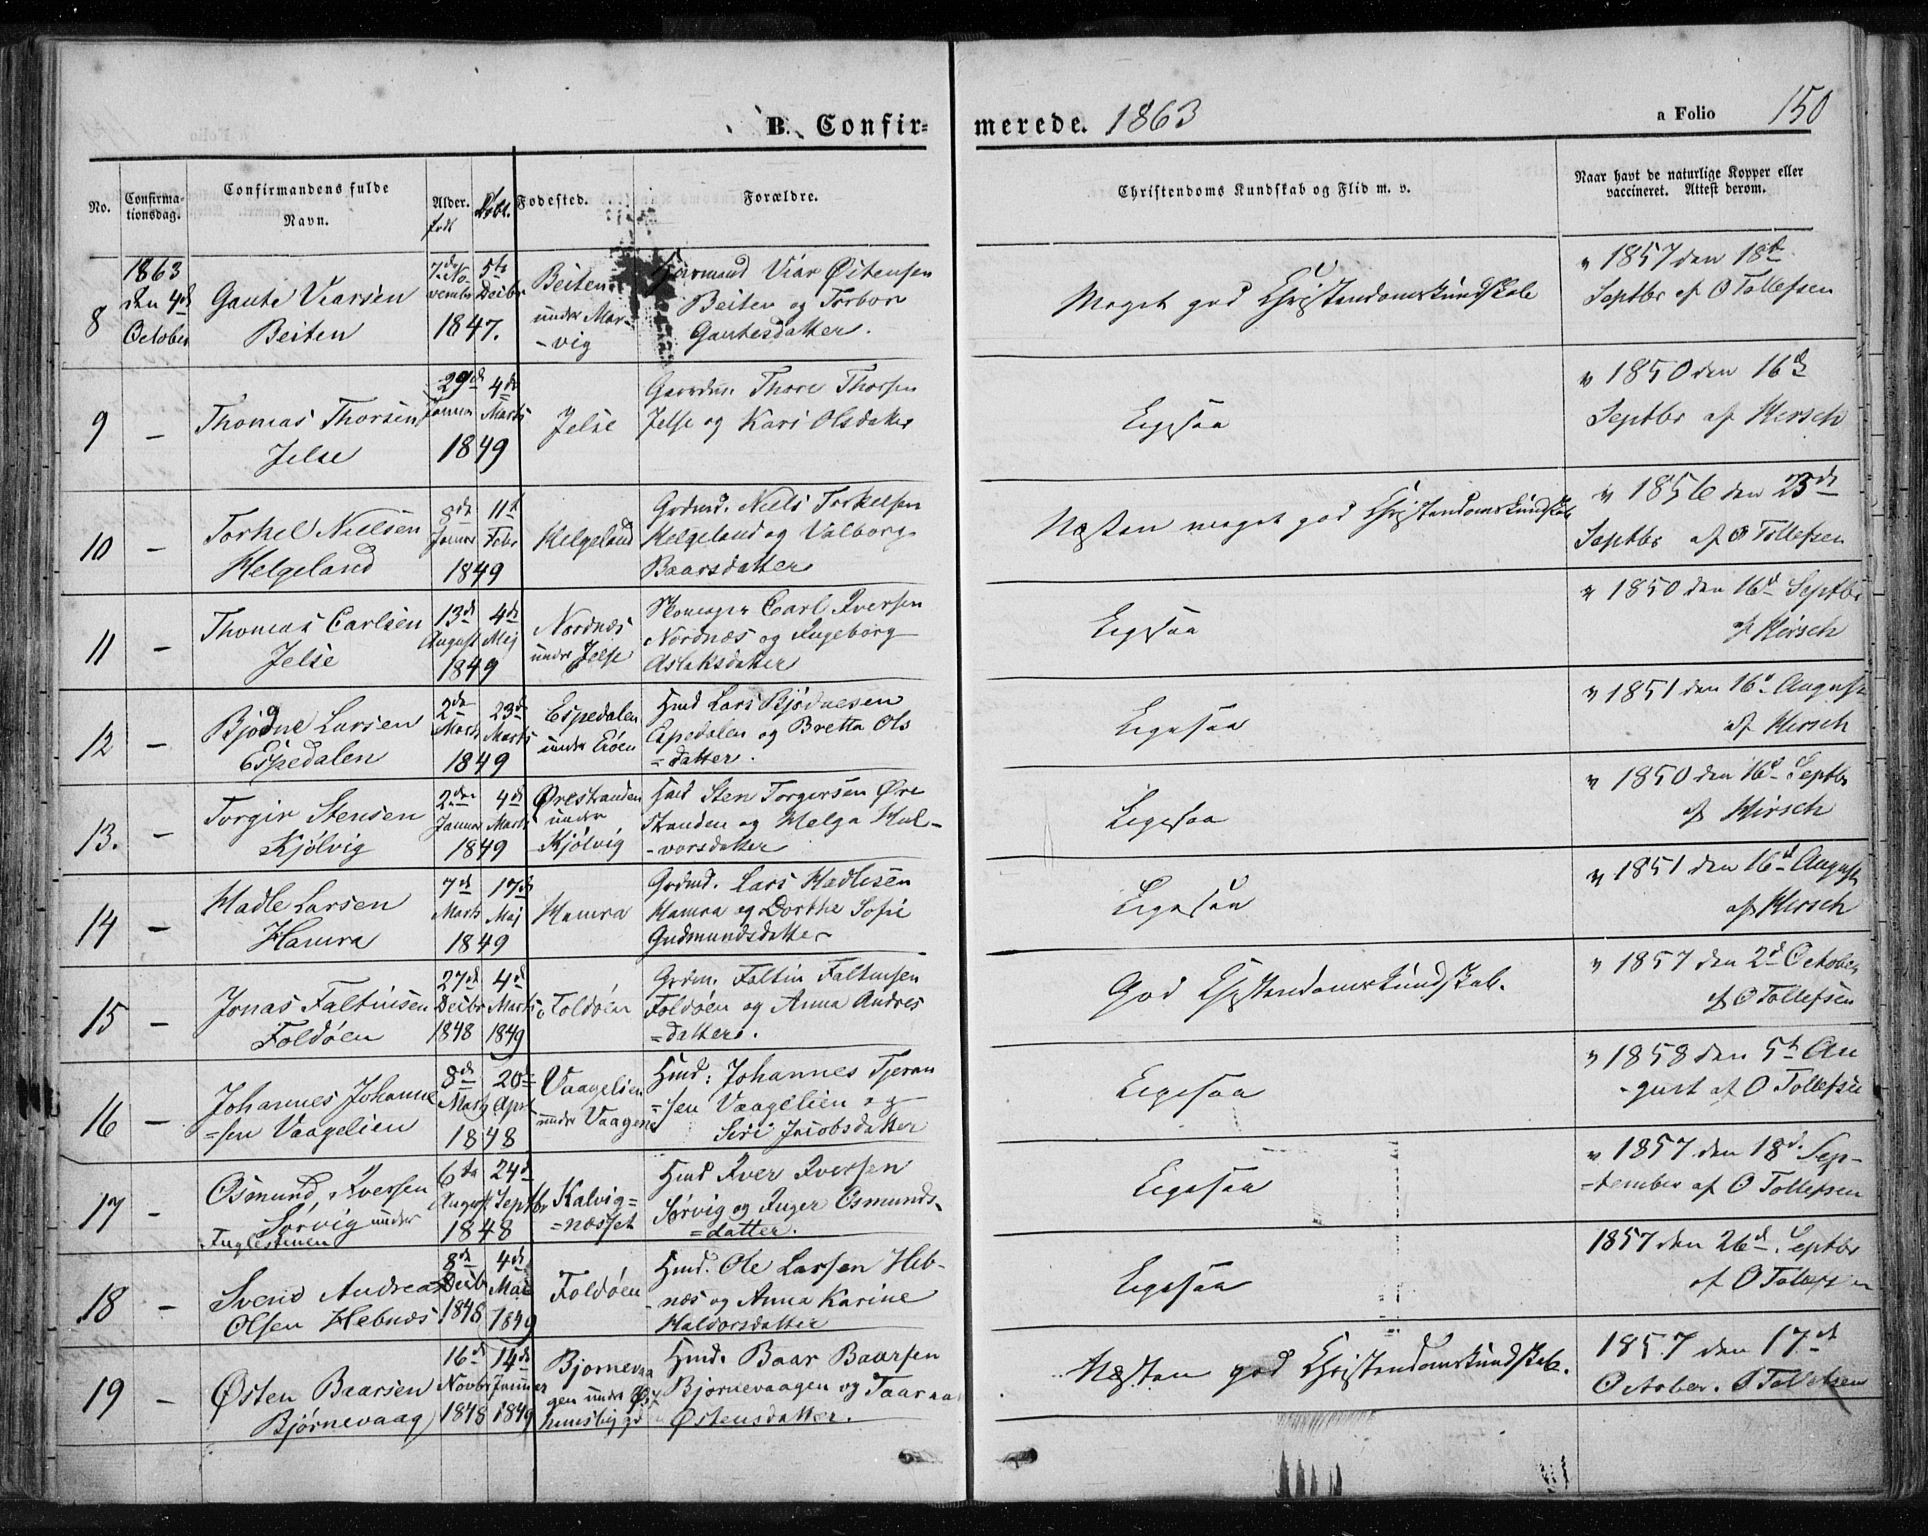 B. Confir= merede. 1863 a Folio 150
No. Confirma-tionsdag. Confirmandens fulde Navn. Alder. født Døbt. Fødested. Forældre. Christendoms Kundskab og Flid m. v. Naar havt de naturlige Kopper eller vaccineret. Attest derom.
1863 7de No- 5te Beiten Viar Østensen " 1857 den 18de
den 4de Gaute Viarsen vember Decbr under Mar- Beiten og Torbor Meget god Christendomskundskab Septbr af O Tollefsen
8 October Beiten 1847. -vig Gautesdatter.
29de 4de Gaardm. Thore Thorsen " 1850 den 16de
9 – Thomas Thorsen Januar Marts Jelse Jelse og Kari Olsdatter Ligesaa Septbr af Hirsch
Jelse 1849
8de 11te Grdmd. Niels Torkelsen " 1856 den 23de
10 – Torkel Nielsen Januar Febr Helgeland Helgeland og Valborg Næsten meget god Christendomskundskab Septbr af O Tollefsen
Helgeland 1849 Baarsdatter
13de 4de Nordnæs Carl Iversen " 1850 den 16de Septbr
11 – Thomas Carlsen August Mej under Jelse Nordnæs og Ingeborg Ligesaa af Hirsch
Jelse 1849 Aslaksdatter
2den 23de Espedalen Hmd Lars Bjødnesen " 1851 den 16de August
12 – Bjødne Larsen Marts Marts under Erøen Espedalen og Bretta Ols Ligesaa af Hirsch
Espedalen 1849 =datter.
2den 4de Ørestranden Sten Torgersen Øre " 1850 den 16de Septbr
13. – Torgir Stensen Januar Marts under stranden og Helga Hal- Ligesaa af Hirsch
Kjølvig 1849 Kjølvig -vorsdatter
7de 17de Grdmd. Lars Hadlesen " 1851 den 16de August
14 – Hadle Larsen Marts Maj Hamra Hamra og Dorthe Sofie Ligesaa af Hirsch
Hamra 1849 Gudmundsdatter
27de 4de Grdm. Faltin Faltinsen " 1857 den 2de October
15 – Jonas Faltinsen Decbr Marts Foldøen Foldøen og Anna Andres God Christendomskundskab. af O Tollefsen
Foldøen 1848 1849 =datter.
8de 20de Vaagelien Hmd: Johannes Tjeran " 1858 den 5te Au
16 – Johannes Johanne Marts April under Vaagene =sen Vaagelien og Ligesaa -gust af O Tollefsen
=sen Vaagelien 1848 Siri Jacobsdatter
6te 24de Hmd Iver Iversen " 1857 den 18de Sep-
17 – Osmund Iversen August Septbr Kalvig= Sørvig og Inger Osmunds- Ligesaa =tember af O Tollefsen
Sørvig under 1848 =næsset =datter.
Fuglestenen
8de 4de Hmd. Ole Larsen Heb- 1857 den 26de Septbr
18 – Svend Andreas Decbr Foldøen næs og Anna Karine Ligesaa af O Tollefsen
Olsen Hebnæs 1848 1849 Haldorsdatter
16de 14de Bjørnevaa Hmd. Baar Baarsen 1857 den 17de
19 – Østen Baarsen Novbr Januar gen under Bjørnevaagen og Taaraa Næsten god Christendomskundskab. October. O Tollefsen
Bjørnevaag 1848 1849 Østensdatter.